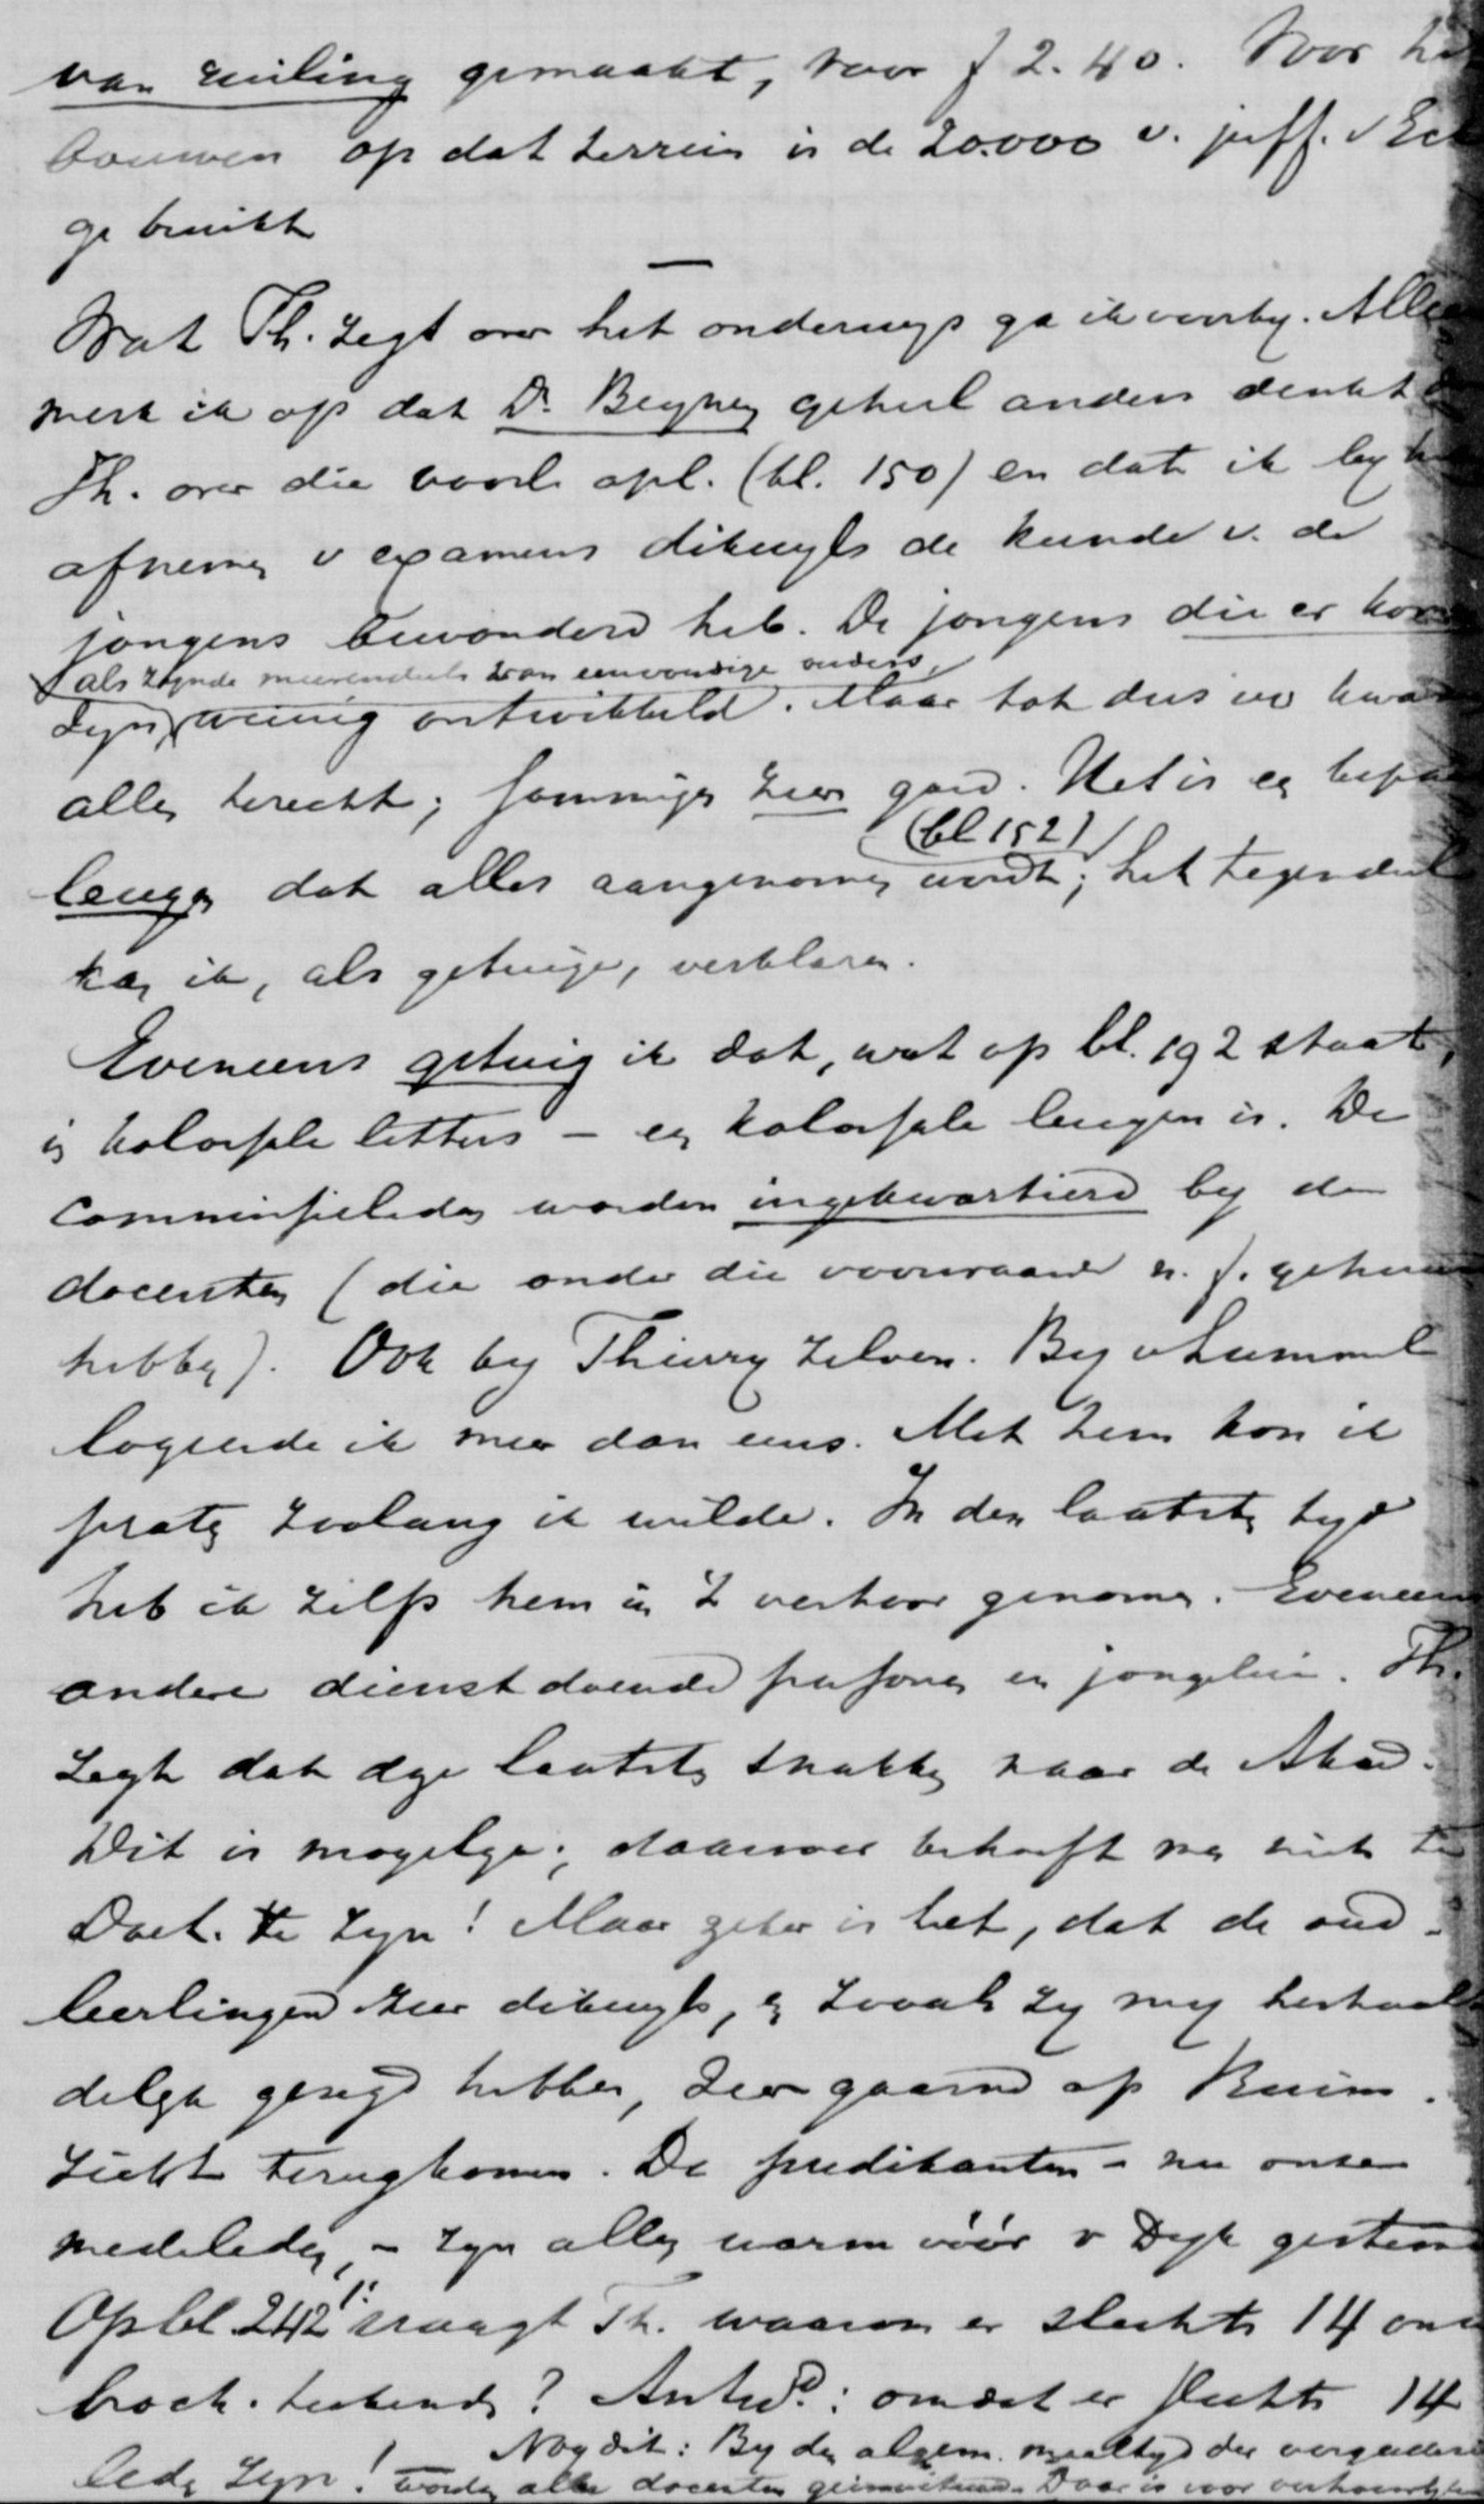 van ruiling gemaakt, voor f 2.40. Voor
bouwen op dat terrein is de 20.000 v. juff. v
gebruikt
—
Wat Th. zegt over het onderwijs ga ik voorby.
merk ik op dat Dr. geheel anders denkt
Th. over die voorb. opl. (bl. 150) en dat ik by
afnemen v examens dikwyls de kunde v. de
jongens bewonderd heb. De jongens die er
als zynde meerendeels van eenvoudige ouders,
zyn weinig ontwikkeld. Maar tot dus ver
allen terecht; sommigen zeer goed. Het is een
(bl 152)
leugen dat alles aangenomen wordt; het tegendeel
kan ik, als getuige, verklaren.
Eveneens getuig ik dat, wat op bl. 192 staat,
in kolossale letters – een kolossale leugen is. De
commissieleden worden ingekwartierd by de
docenten (die onder die voorwaarde
hebben). Ook by Thierry zelven. By v Lummel
logeerde ik meer dan eens. Met hem kon ik
praten zoolang ik wilde. In den laatsten tyd
heb ik zelfs hem in 't verhoor genomen.
andere dienstdoende personen en jongelui. Th.
zegt dat deze laatsten snakken naar de Akad.
Dit is mogelyk; daarvoor behoeft men niet te
Doet. te zyn! Maar zeker is het, dat de oud-
leerlingen zeer dikwyls, en zooals zy my
delyk gezegd hebben, zeer gaarne op Ruim-
zicht terugkomen. De predikanten – nu onze
medeleden, – zyn allen warm vóór v Dyk
Op bl. 242 vraagt Th. waarom er slechts 14
broch. teekenden? Antwd.: omdat er slechts 14
leden zyn! Nog dit: By den algem. maaltyd der
worden alle docenten geinviteerd. Daar is voor